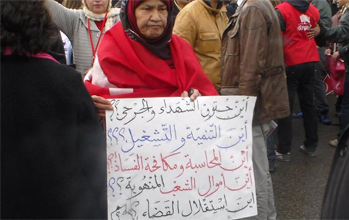 أين حقوق الشهداء والجرحى؟
أين التنمية والتشغيل؟؟؟
أين المحاسبة ومكافحة الفساد؟؟
أين أموال الشعب المنهوبة؟؟
أين استقلال القضاء؟؟